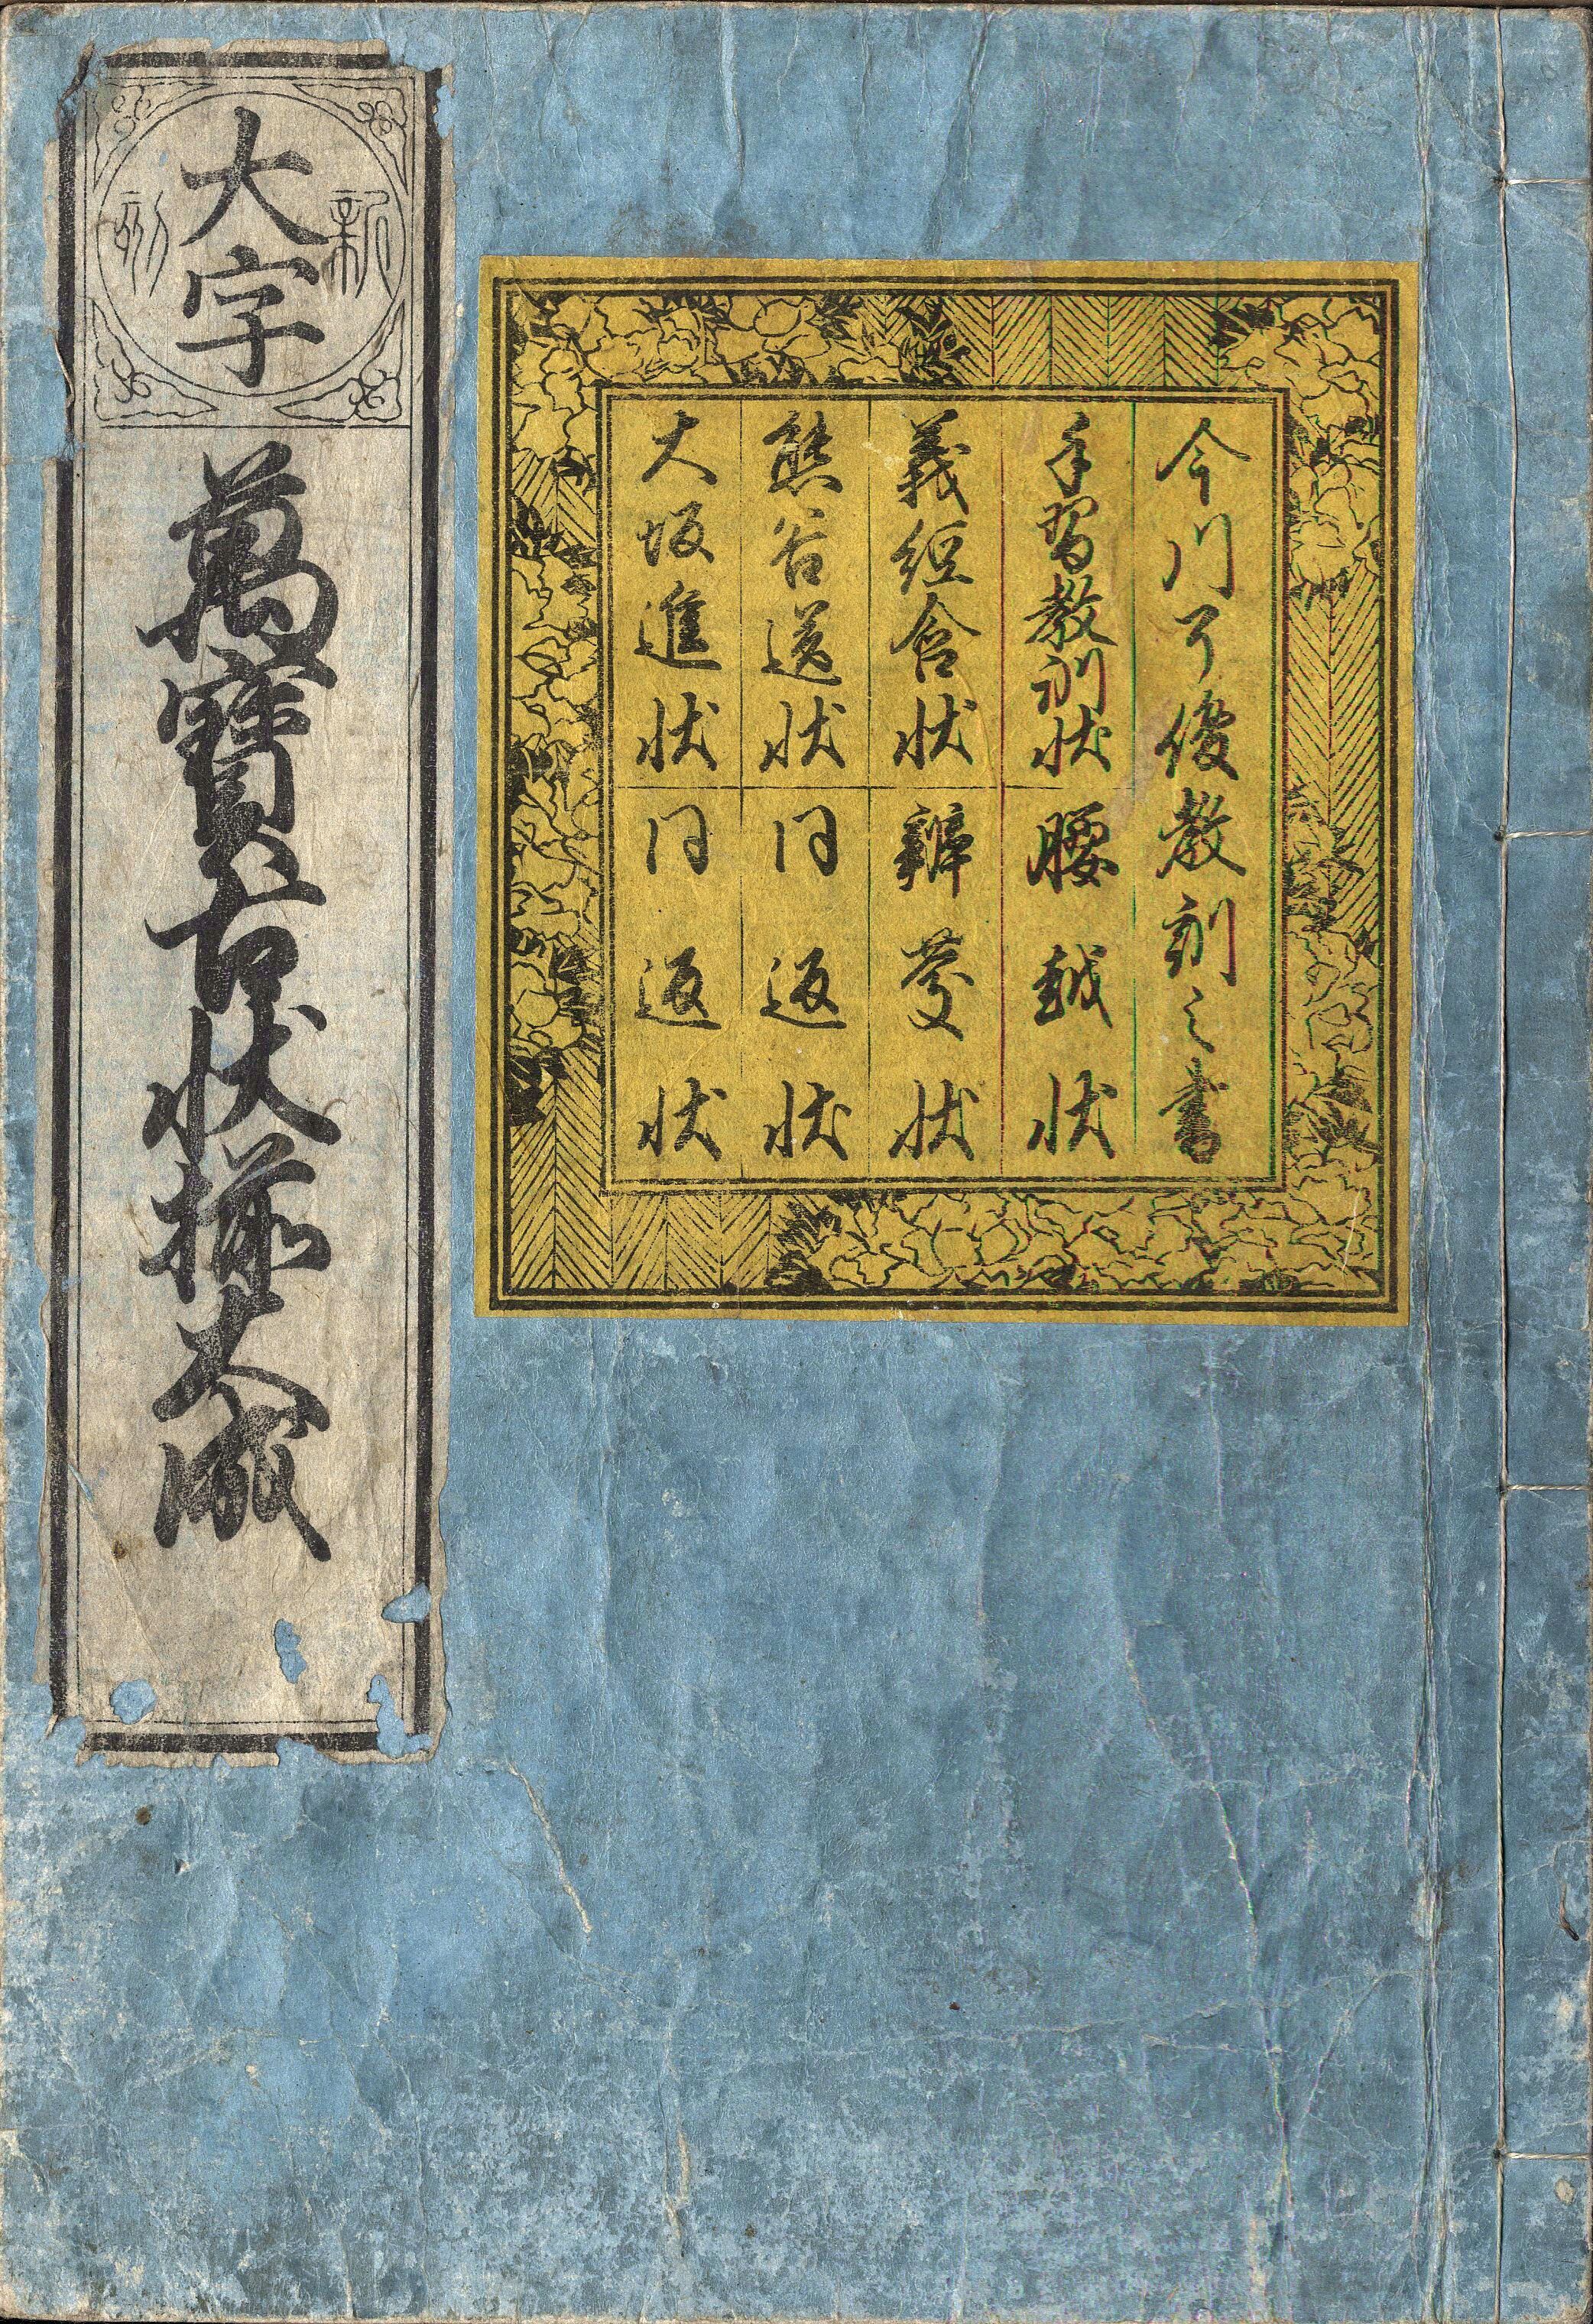 今川了俊教訓之書
手習教訓状
腰越状
義経含状
辨慶状
熊谷送状
同返状
大坂進状
同返状
新刻
大字
萬寳古状揃大成